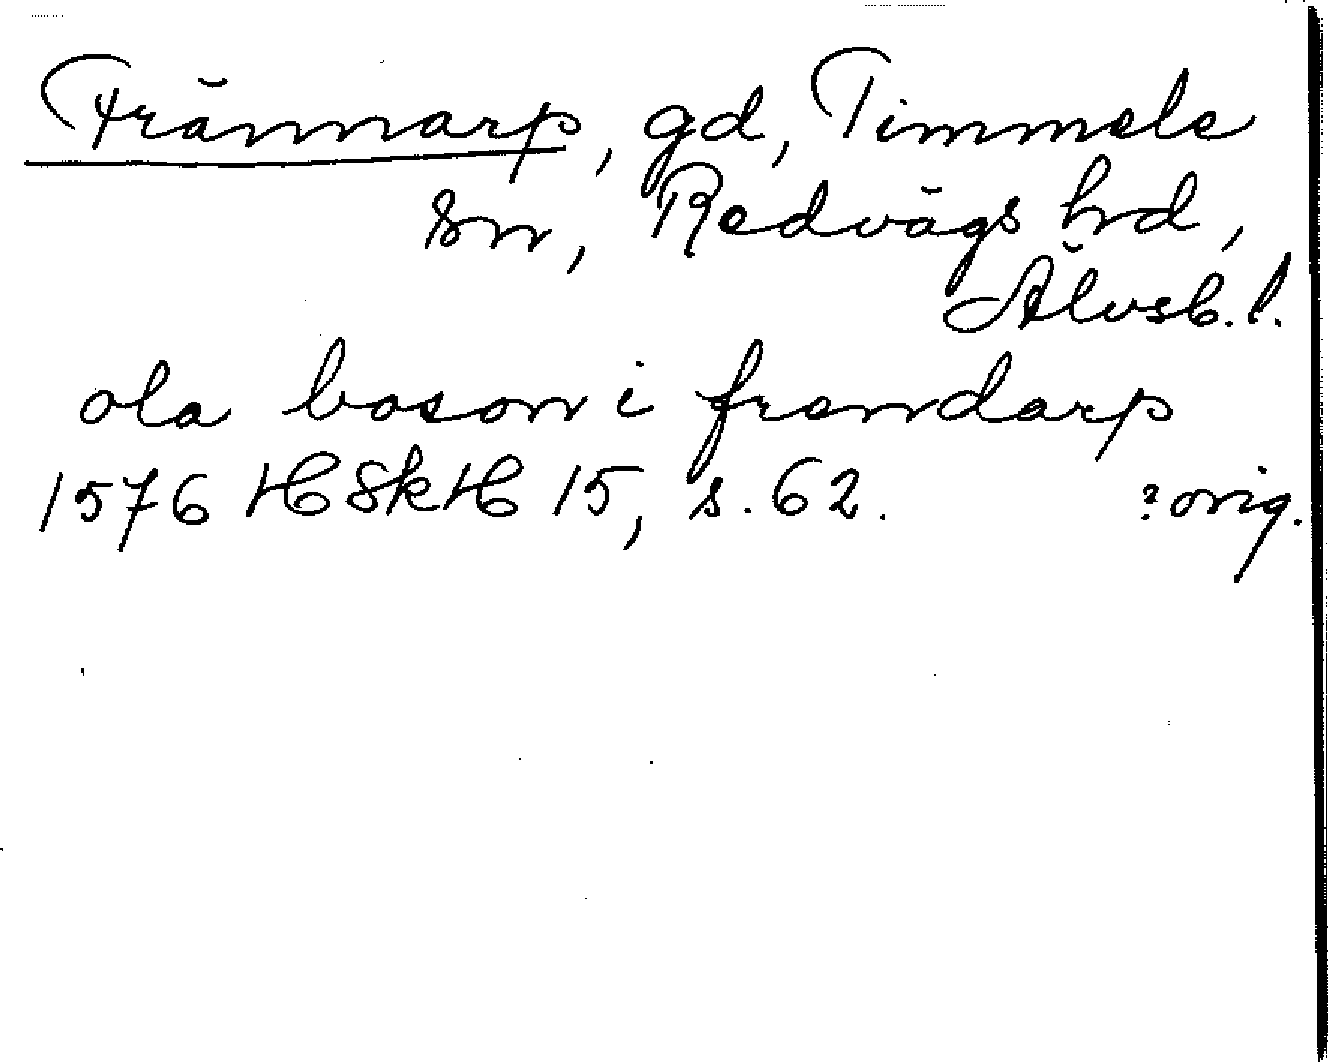 Frännarp, gd, Timmele
sn, Redvägs hd,
Älvsb. l.
ola boson i frendarp
1576 HSkH 15, s. 62. ? orig.